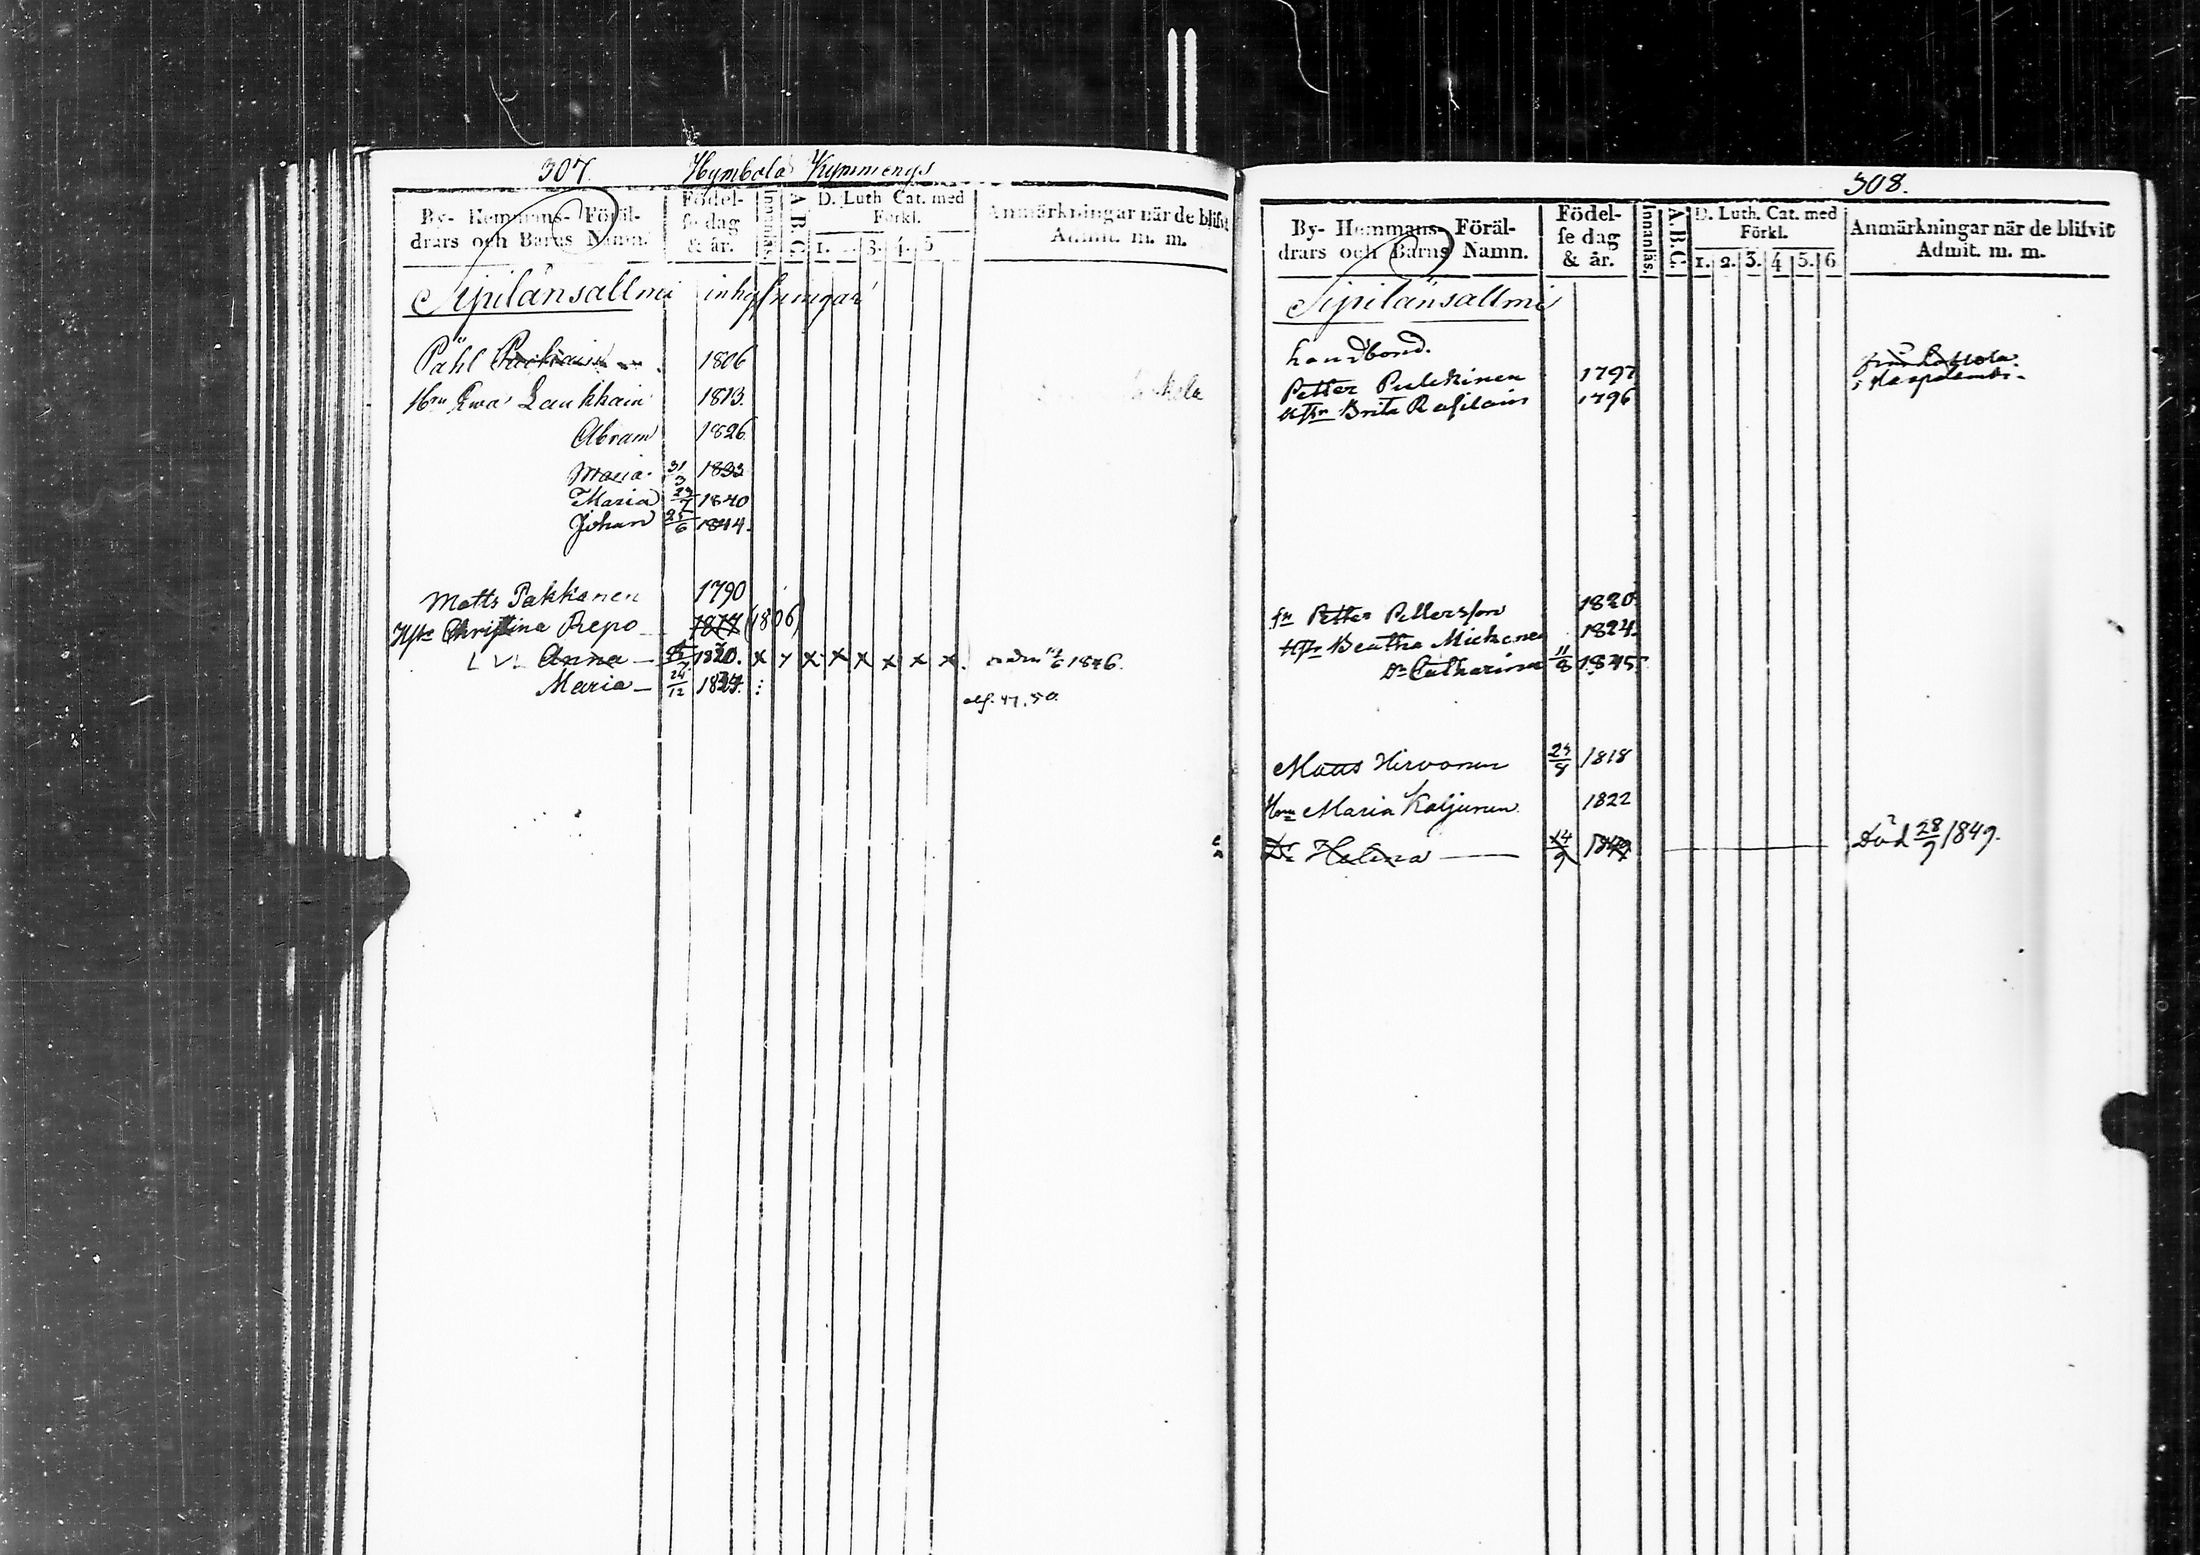 307. Hymbola Kymmenys
By- Hemmans- Föräl-
drars och Barns Namn.
Födel-
se dag
& år.
Innanläs.
A.B.C.
D. Luth. Cat. med
Förkl.
1. 3. 4. 5
Anmärkningar när de blifvit
Admit. m. m.
Sipilänsallmi inhysningar
Påhl 1806
Hru Ewa Laukkain 1813
Abram 1826
Maria 31/3 1833
Maria 1840
Johan 25/6 1844.
Matts Pakkanen 1790
Hstr Christina Repo 1817 (1806)
Anna 1820. x x x x x x x x 1846.
Maria 24/12 1827.
47, 50.
308.
By- Hemmans- Föräl-
drars och Barns Namn.
Födel-
se dag
& år.
Innanläs.
A.B.C.
D. Luth. Cat. med
Förkl.
1. 2. 3. 4 5. 6
Anmärkningar när de blifvit
Admit. m. m.
Sipilänsallmi
landbond.
Petter Pulkkinen 1797
Hstr Brita Rasilain 1796
Sn Petter Pettersson 1820
Hstr Beatha 1824.
Dr Catharina 11/8 1845
Matts Hirvonen 1818
Hru Maria Koljunen 1822
Dr Helena 14/9 1849 Död 28/9 1849.